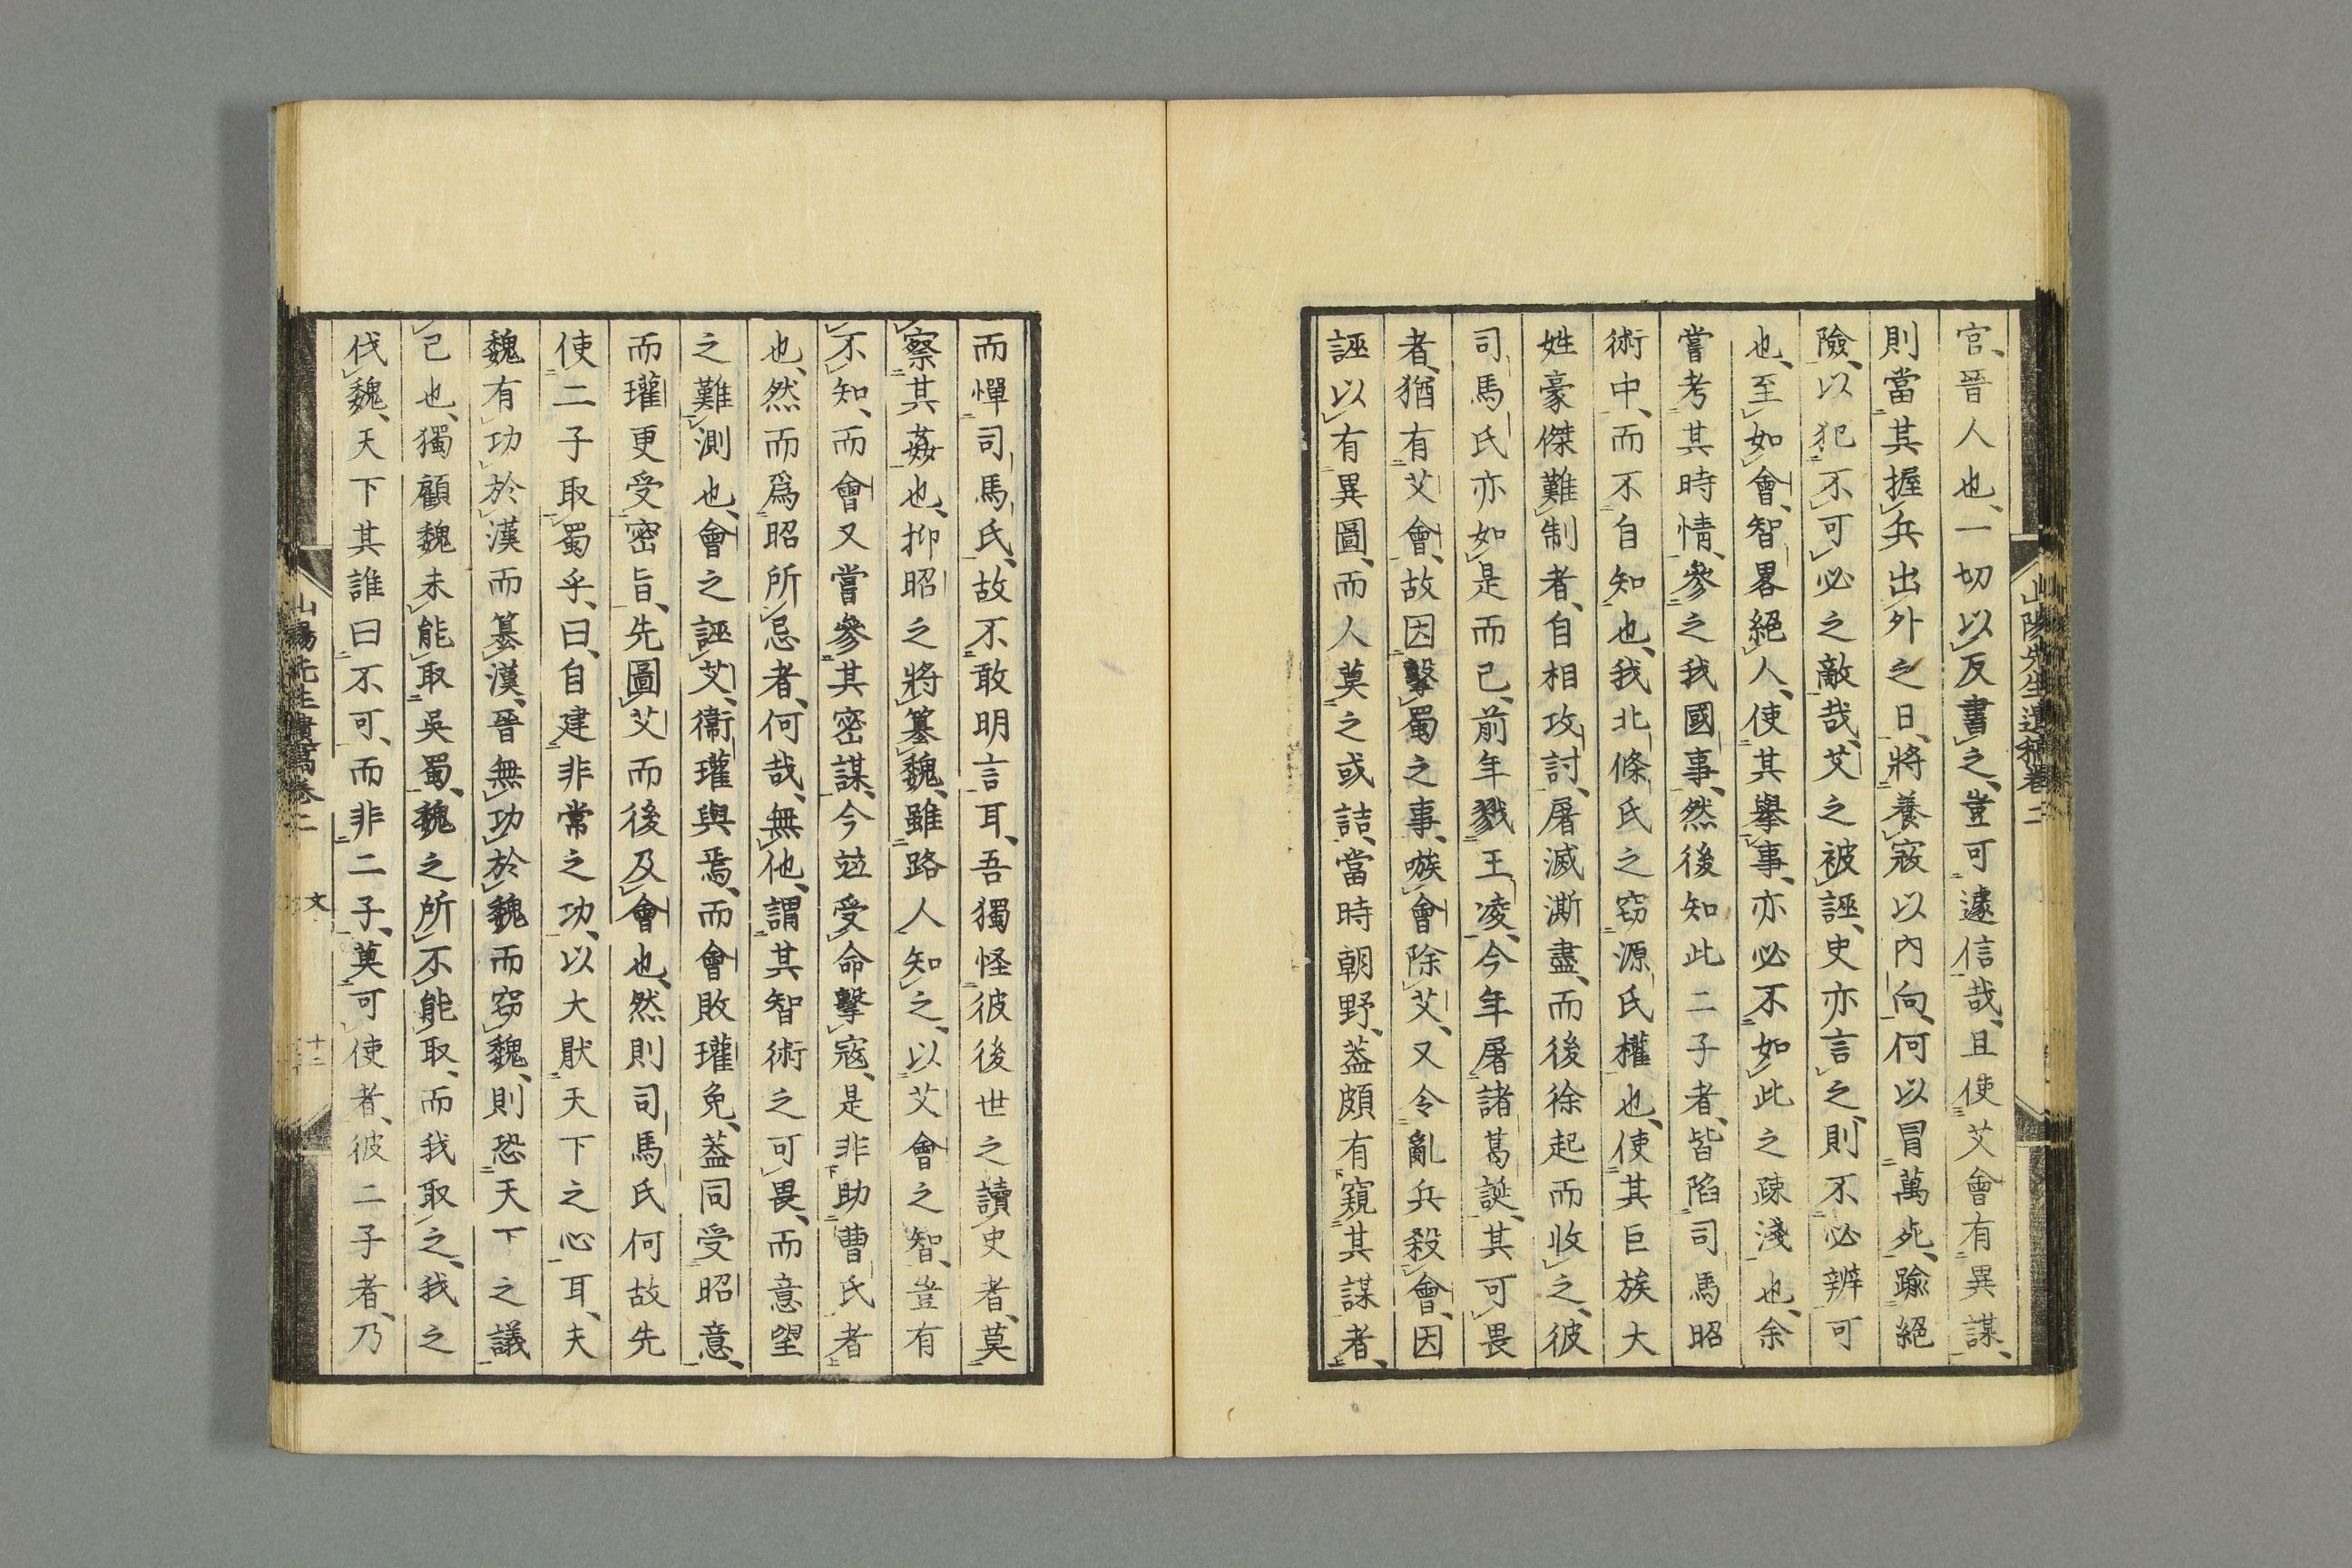 山陽先生遺稿卷二
官、晉人也、一切以反書之、豈可遽信哉、且使艾會有異謀、
則當其握兵出外之日、將養寇以內向、何以冒萬死、踰絕
險、以犯不可必之敵哉、艾之被誣、史亦言之、則不必辨可
也、至如會、智畧絕人、使其擧事、亦必不如此之疎淺也、余
嘗考其時情、參之我國事、然後知此二子者、皆陷司馬昭
術中、而不自知也、我北條氏之竊源氏權也、使其巨族大
姓豪傑難制者、自相攻討、屠滅澌盡、而後徐起而收之、彼
司馬氏亦如是而已、前年戮王凌、今年屠諸葛誕、其可畏
者、猶有艾會、故因擊蜀之事、嗾會除艾、又令亂兵殺會、因
誣以有異圖、而人莫之或詰、當時朝野、葢頗有窺其謀者、
而憚司馬氏、故不敢明言耳、吾獨怪彼後世之讀史者、莫
察其姦也、抑昭之將簒魏、雖路人知之、以艾會之智、豈有
不知、而會又嘗參其密謀、今竝受命擊寇、是非助曹氏者
也、然而爲昭所忌者、何哉、無他、謂其智術之可畏、而意望
之難測也、會之誣艾、衞瓘與焉、而會敗瓘免、葢同受昭意、
而瓘更受密旨、先圖艾而後及會也、然則司馬氏何故先
使二子取蜀乎、曰、自建非常之功、以大厭天下之心耳、夫
魏有功於漢而簒漢、晉無功於魏而竊魏、則恐天下之議
己也、獨顧魏未能取吳蜀、魏之所不能取、而我取之、我之
伐魏、天下其誰曰不可、而非二子、莫可使者、彼二子者、乃
山陽先生遺稿卷二 文 十二